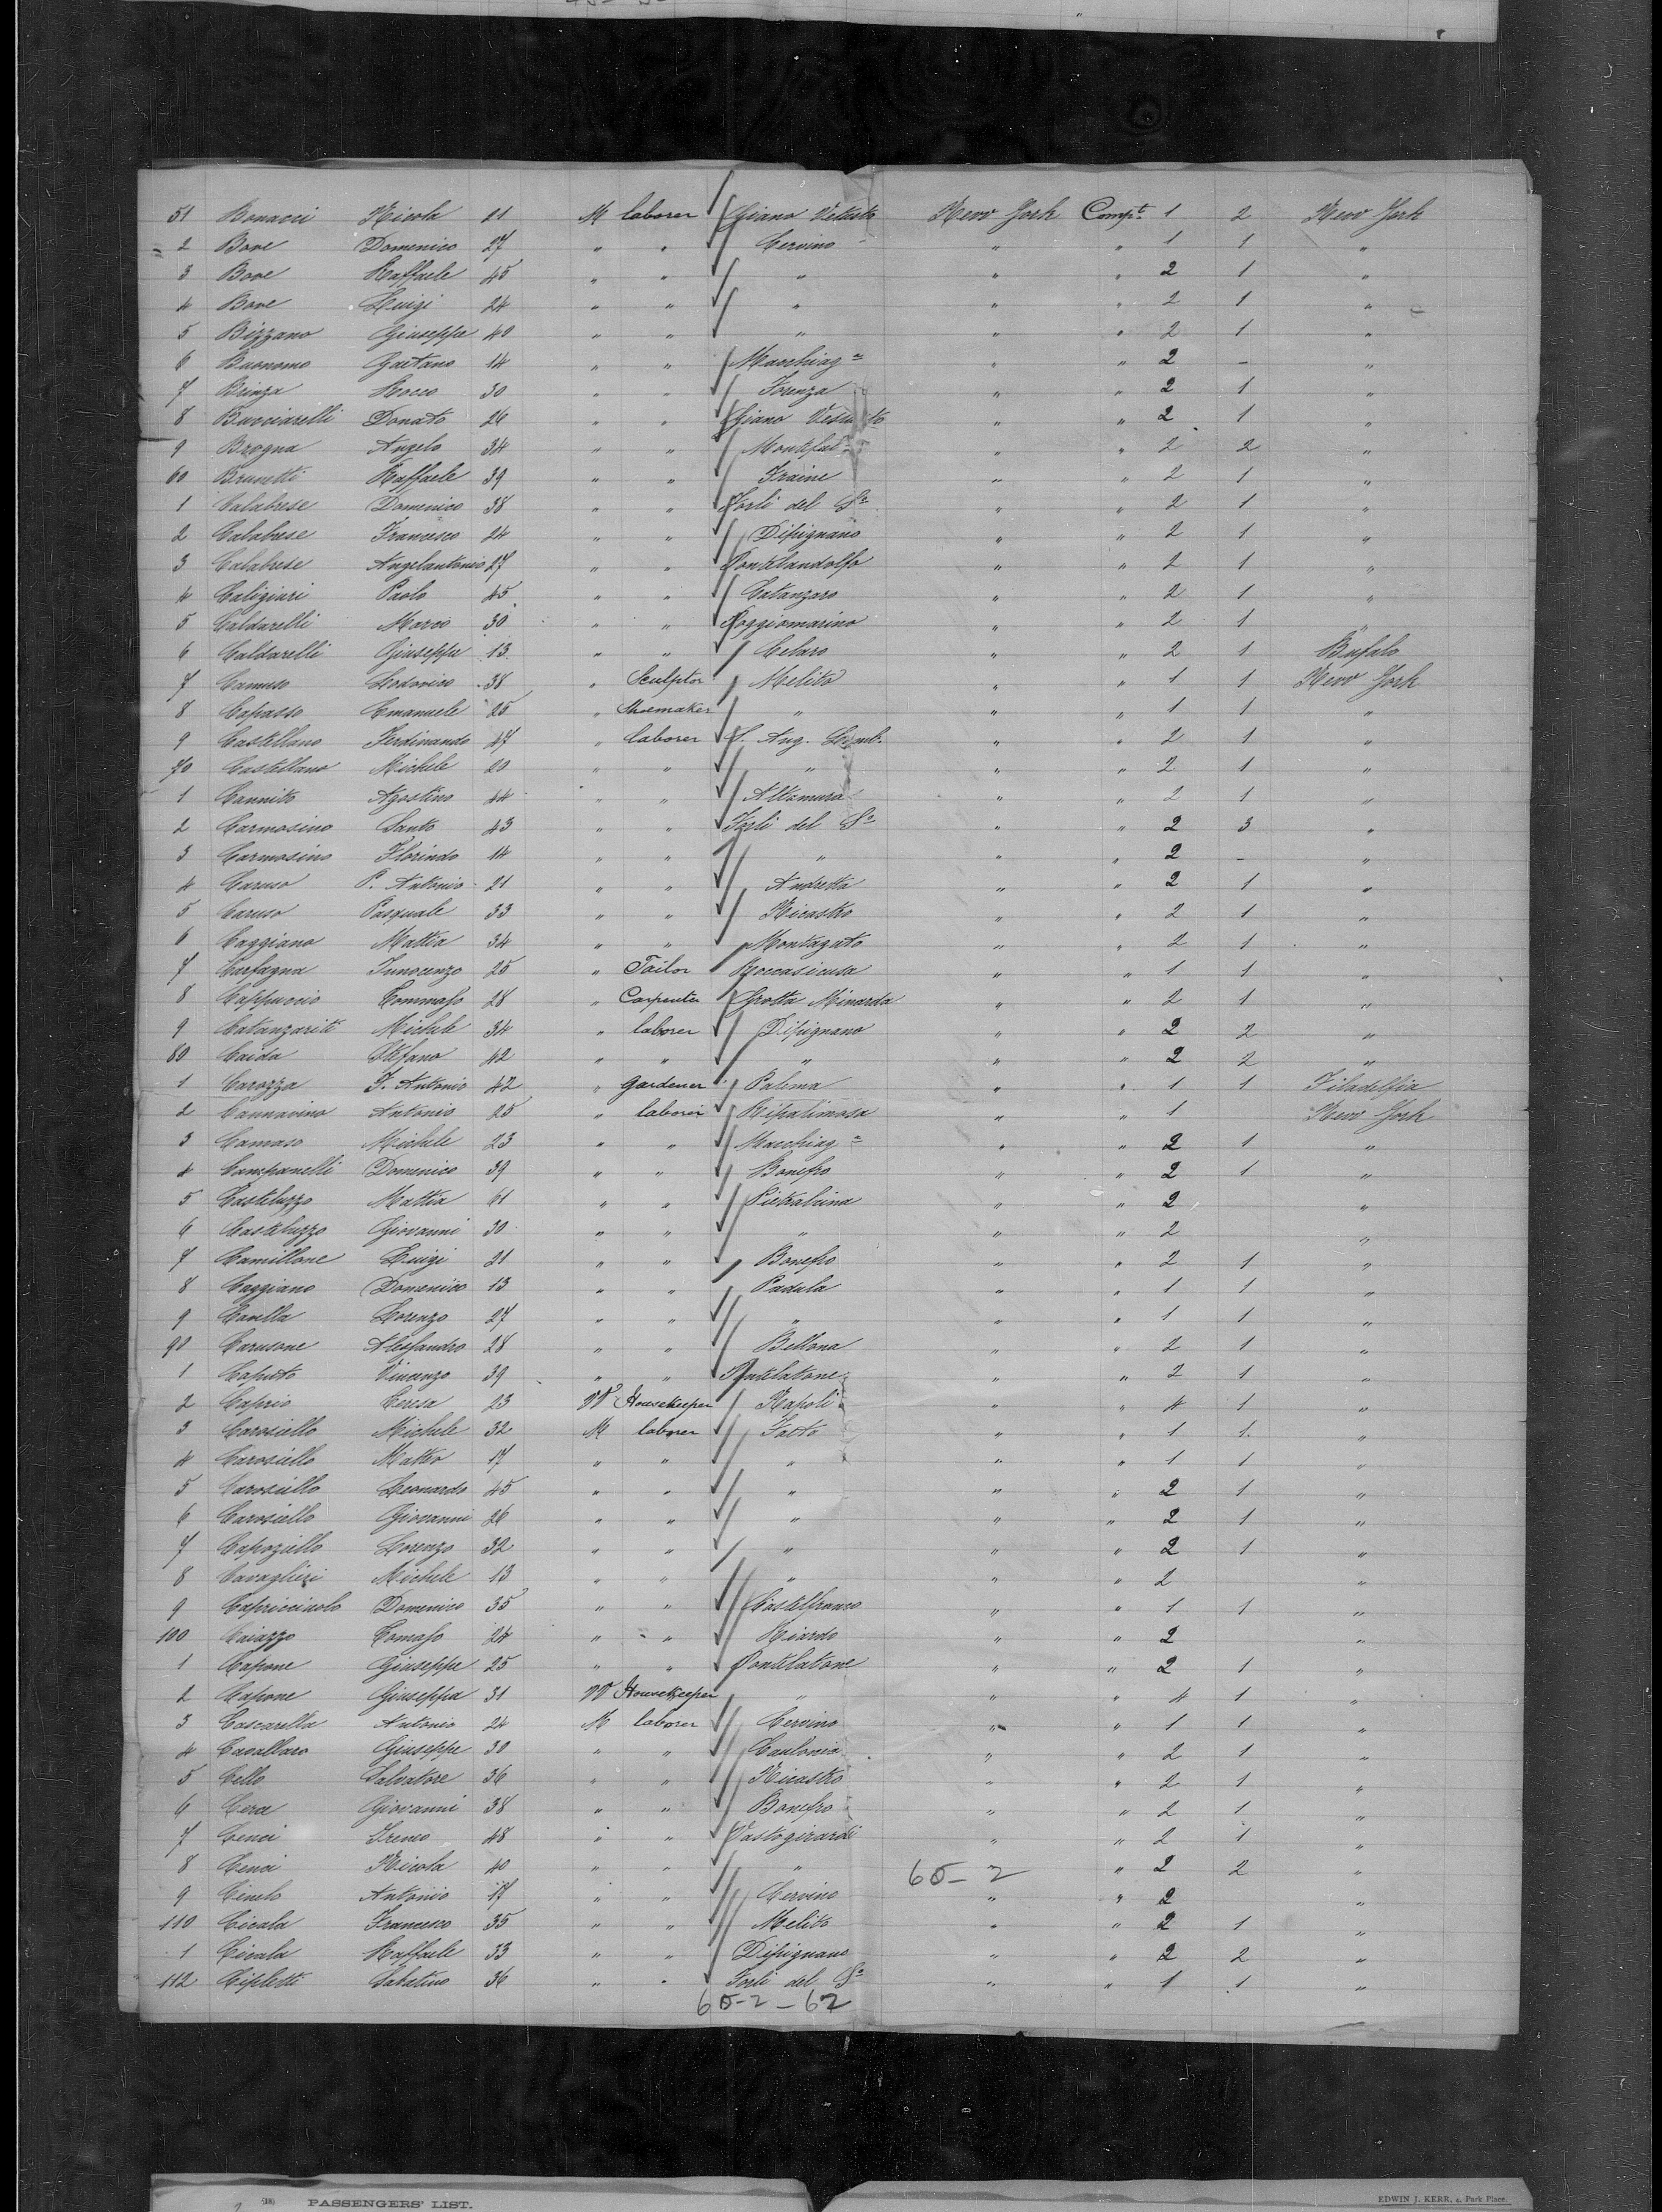 51 Bonacci Nicola 21 M laborer Giano Vetusto New York Compt. 1 2 New York
2 Bove Domenico 27 " " Cervino " " 1 1 "
3 Bove Raffaele 45 " " " " " 2 1 "
4 Bove Luigi 24 " " " " " 2 1 "
5 Bizzano Giuseppe 40 " " " " " 2 1 "
6 Buonomo Gaetano 14 " " Macchiag " " 2 - "
7 Brinza Rocco 30 " " Forenza " " 2 1 "
8 Bucciarelli Donato 26 " " Giano Vetusto " " 2 1 "
9 Brogna Angelo 34 " " Montefal " " 2 2 "
60 Brunetti Raffaele 39 " " Fraine " " 2 1 "
1 Calabrese Domenico 38 " " Forli del So " " 2 1 "
2 Calabrese Francesco 24 " " Dipignano " " 2 1 "
3 Calabrese Angelantonio 27 " " Pontelandolfo " " 2 1 "
4 Caligiuri Paolo 45 " " Catanzaro " " 2 1 "
5 Caldarelli Marco 30 " " Poggiomarino " " 2 1 "
6 Caldarelli Giuseppe 13 " " Celaro " " 2 1 Bufalo
7 Camuso Lodovico 38 " Sculptor Melito " " 1 1 New York
8 Capasso Emanuele 25 " Shoemaker " " " 1 1 "
9 Castellano Ferdinando 47 " laborer S. Ang. Lomb. " " 2 1 "
70 Castellano Michele 20 " " " " " 2 1 "
1 Cannito Agostino 44 " " Altamura " " 2 1 "
2 Carmosino Santo 43 " " Forli del So " " 2 3 "
3 Carmosino Florindo 14 " " " " " 2 - "
4 Caruso P. Antonio 21 " " Andretta " " 2 1 "
5 Caruso Pasquale 33 " " Nicastro " " 2 1 "
6 Caggiano Mattia 34 " " Montaguto " " 2 1 "
7 Carfagna Innocenzo 25 " Tailor Roccasicusa " " 1 1 "
8 Cappuccio Tommaso 28 " Carpenter Grotta Minarda " " 2 1 "
9 Catanzariti Michele 34 " laborer Dipignano " " 2 2 "
80 Caida Stefano 42 " " " " " 2 2 "
1 Carozza F. Antonio 42 " gardener Palema " " 1 1 Filadelfia
2 Cannavino Antonio 25 " laborer Ripalimosa " " 1 New York
3 Camaso Michele 23 " " Macchiag " " 2 1 "
4 Campanelli Domenico 39 " " Bonefro " " 2 1 "
5 Casteluzzo Mattia 61 " " Pietralcina " " 2 "
6 Casteluzzo Giovanni 30 " " " " " 2 "
7 Camillone Luigi 21 " " Bonefro " " 2 1 "
8 Caggiano Domenico 13 " " Padula " " 1 1 "
9 Cavella Lorenzo 27 " " " " " 1 1 "
90 Carusone Alessandro 28 " " Bellona " " 2 1 "
1 Caputo Vincenzo 39 " " Pontelatone " " 2 1 "
2 Caprio Teresa 23 W Housekeeper Napoli " " 4 1 "
3 Carosiello Michele 32 M laborer Faeto " " 1 1 "
4 Carosiello Matteo 17 " " " " " 1 1 "
5 Carosiello Leonardo 45 " " " " " 2 1 "
6 Carosiello Giovanni 26 " " " " " 2 1 "
7 Capoziello Lorenzo 32 " " " " " 2 1 "
8 Cavaglieri Michele 13 " " " " " 2 "
9 Capriccinolo Domenico 35 " " Castelfranco " " 1 1 "
100 Caiazzo Tomaso 24 " " Riardo " " 2 "
1 Capone Giuseppe 25 " " Pontelatone " " 2 1 "
2 Capone Giuseppa 31 W Housekeeper " " " 4 1 "
3 Cascarella Antonio 24 M laborer Cervino " " 1 1 "
4 Cavallaro Giuseppe 30 " " Caulonia " " 2 1 "
5 Cello Salvatore 36 " " Nicastro " " 2 1 "
6 Cerce Giovanni 38 " " Bonefro " " 2 1 "
7 Cenci Ireneo 48 " " Vastogirardi " " 2 1 "
8 Cenci Nicola 40 " " " " " 2 2 "
65-2
9 Cinelo Antonio 17 " " Cervino " " 2 "
110 Cicala Francesco 35 " " Melito " " 2 1 "
1 Cicala Raffaele 33 " " Dipignano " " 2 2 "
112 Cipletti Sabatino 36 " " Forli del So " " 1 1 "
65-2-62
(18) PASSENGERS' LIST. EDWIN J. KERR, 4, Park Place.